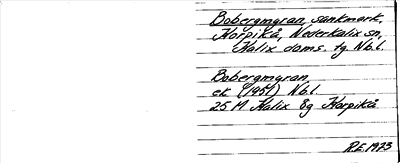 Bobergmyran, sankmark,
Korpikå, Nederkalix sn,
Kalix doms. tg Nb.l.
Bobergmyran,
ek (1951) Nb.l.
25 M Kalix 8g Korpikå
R.E. 1973